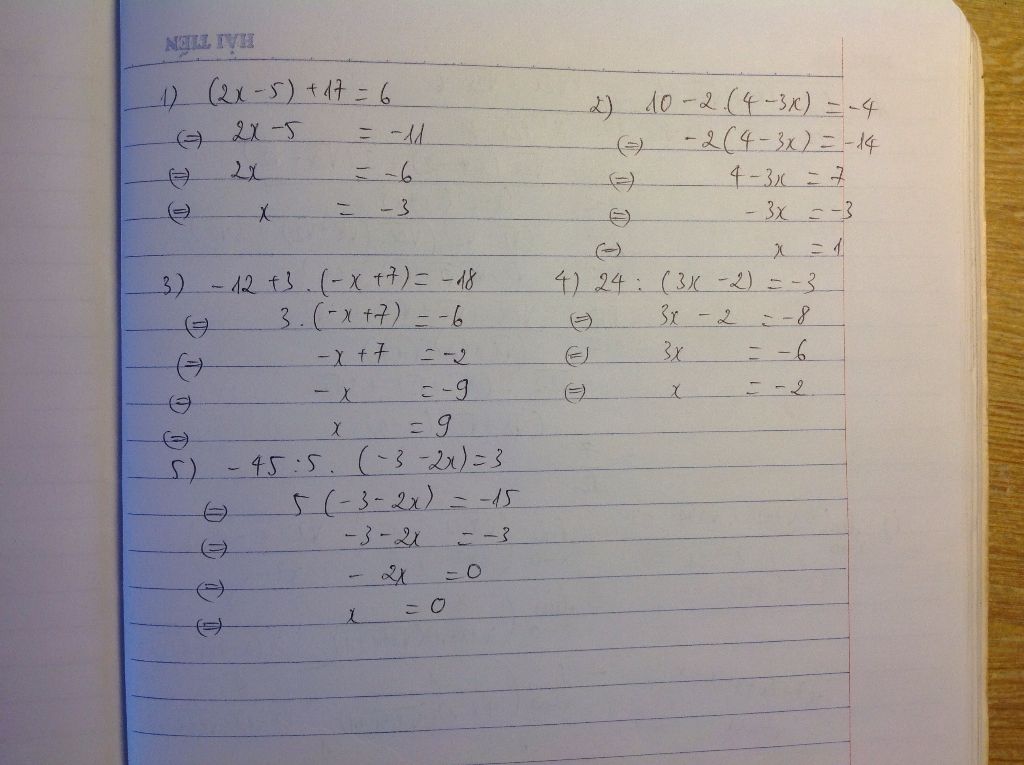 HẢI TIẾN
1) (2x-5)+17=6
(=) 2x-5 = -11
(=) 2x = -6
(=) x = -3
2) 10-2.(4-3x) = -4
(=) -2(4-3x) = -14
(=) 4-3x = 7
(=) -3x = -3
(=) x = 1
3) -12+3.(-x+7) = -18
(=) 3.(-x+7) = -6
(=) -x+7 = -2
(=) -x = -9
(=) x = 9
4) 24 : (3x-2) = -3
(=) 3x-2 = -8
(=) 3x = -6
(=) x = -2
5) -45:5.(-3-2x)=3
(=) 5(-3-2x) = -15
(=) -3-2x = -3
(=) -2x = 0
(=) x = 0